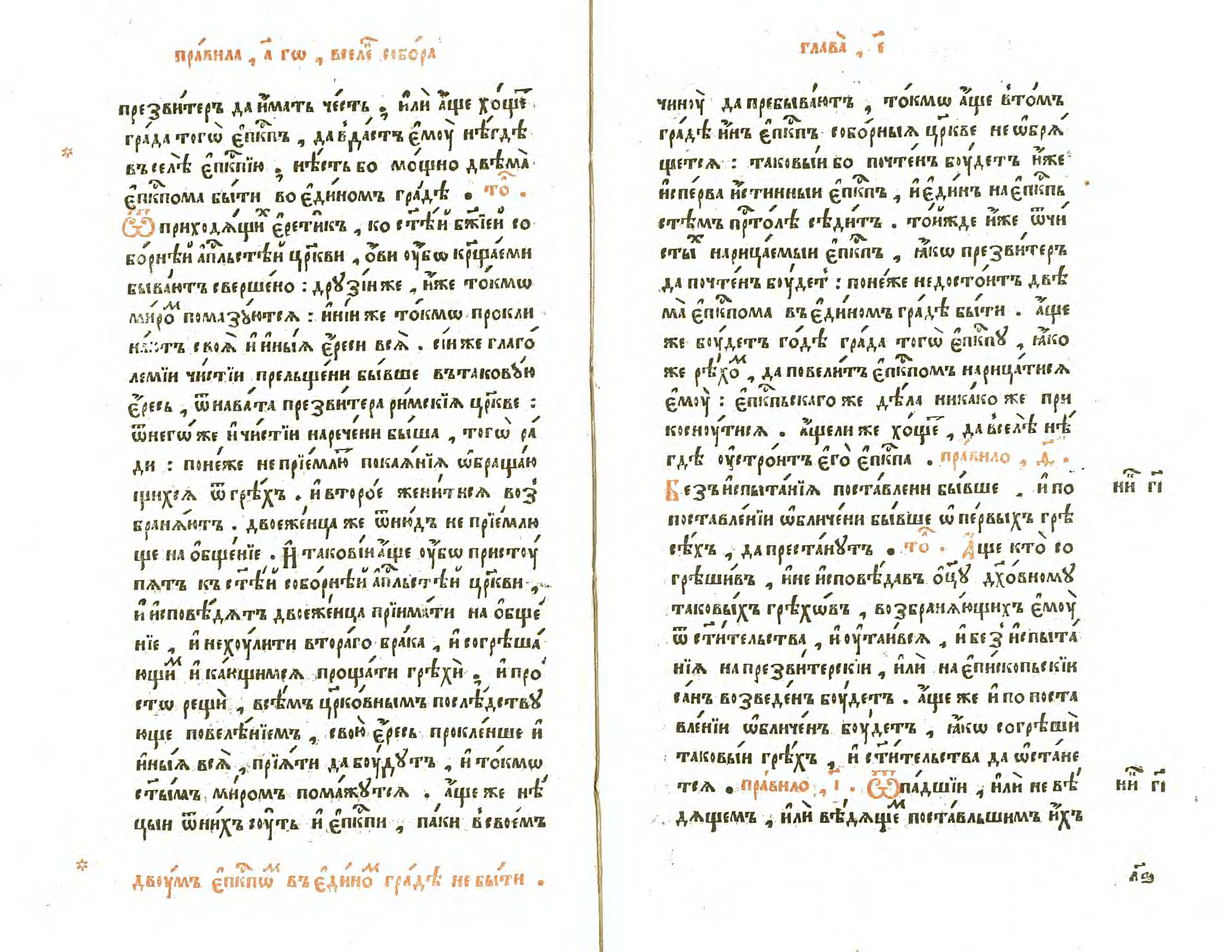 пра́вила , а҃ гѡ , вселе́ⷩ собо́ра
презви́теръ да и́мать че́сть , и҆лѝ а҆́ще хо́щеⷮ
гра́да тогѡ̀ є҆пⷭ҇кпъ , да вда́стъ є҆моу̀ нѣ́гдѣ
въ селѣ̀ є҆пⷭ҇кпїю , нѣ́сть бо мо́щно двѣ́ма
є҆пⷭ҇кпома бы́ти во є҆ди́номъ гра́дѣ . то́ⷧ .
Ѿ приходѧ́щиⷯ є҆рети́къ , ко ст҃ѣ́й бж҃їей со
бо́рнѣй а҆пⷭ҇льстѣй цр҃кви , ѻ҆́ви оу҆́бѡ крⷭ҇ща́еми
быва́ютъ сверше́но : друзі́и же , и҆́же то́кмѡ
ми́роⷨ помазу́ютсѧ : и҆ні́и же то́кмѡ прокли
на́ютъ своѧ̀ и҆ и҆ны́ѧ є҆́реси всѧ̀ . сі́и же глаго́
лемїи чи́стїи прельще́ни бы́вше въ такову́ю
є҆́ресь , ѿ нава́та презви́тера ри́мскїѧ цр҃кве :
ѿ негѡ́ же и҆ чи́стїи нарече́ни бы́ша , тогѡ̀ ра́
ди : поне́же не прїе́млюⷮ покаѧ́нїѧ ѡ҆браща́ю
щихсѧ ѿ грѣ́хъ . и҆ второ́е жени́тисѧ воз̾
бранѧ́ютъ . двоеже́нца же ѿню́дъ не прїе́млю
ще на ѻ҆бще́нїе . И҆ такові́и а҆́ще оу҆́бѡ присту́
пѧтъ къ ст҃ѣ́й собо́рнѣй а҆пⷭ҇льстѣй цр҃кви ,
и҆ и҆сповѣ́дѧтъ двоеже́нца прїима́ти на ѻ҆бще́
нїе , и҆ не ху́лити втора́го бра́ка , и҆ согрѣша́
ющиⷨ и҆ ка́ющимсѧ проща́ти грѣхѝ , и҆ про́
стѡ рещѝ , всѣ́мъ цр҃ко́внымъ послѣ́дству
юще повелѣ́нїемъ , свою̀ є҆́ресь прокле́нше и҆
и҆ны́ѧ всѧ̀ , прїѧ́ти да бу́дутъ , и҆ то́кмѡ
ст҃ы́мъ ми́ромъ пома́жутсѧ . а҆́ще же нѣ́
цыи ѿ ни́хъ су́ть и҆ є҆пⷭ҇кпи , па́ки в̾ свое́мъ
двоу́мъ є҆пⷭ҇кпѡⷨ въ є҆ди́ноⷨ гра́дѣ не бы́ти .
глава̀ , є҃
чиноу̀ да пребыва́ютъ , то́кмѡ а҆́ще в̾ то́мъ
гра́дѣ и҆́нъ є҆пⷭ҇кпъ собо́рныѧ цр҃кве не ѡ҆брѧ́
щетсѧ : таковы́и бо почте́нъ бу́детъ и҆́же
и҆спе́рва и҆́стинныи є҆пⷭ҇кпъ , и҆ є҆ди́нъ на є҆пⷭ҇кпь
стѣмъ прⷭ҇то́лѣ сѣди́тъ . то́йжде и҆́же ѿ чи́
стыⷯ нарица́емыи є҆пⷭ҇кпъ , ꙗ҆́кѡ презви́теръ
да почте́нъ бу́детъ : поне́же недосто́итъ двѣ
ма̀ є҆пⷭ҇кпома въ є҆ди́номъ гра́дѣ бы́ти . а҆́ще
же бу́детъ го́дѣ гра́да тогѡ̀ є҆пⷭ҇кпу , ꙗ҆́ко
же рѣ́хоⷨ , да повели́тъ є҆пⷭ҇кпомъ нарица́тисѧ
є҆моу̀ : є҆пⷭ҇кпьскаго же дѣ́ла ника́ко же при
косноу́тисѧ . а҆́ще ли же хо́щеⷮ , да в̾ селѣ̀ нѣ́
гдѣ оу҆стро́итъ є҆го̀ є҆пⷭ҇кпа . пра́вило , д҃ .
Без̾ и҆спыта́нїѧ поста́влени бы́вше , и҆ по
поставле́нїи ѡ҆бличе́ни бы́вше ѡ҆ пе́рвыхъ грѣ
сѣ́хъ , да преста́нутъ . то́ⷧ . А҆́ще кто̀ со
грѣши́въ , и҆ не и҆сповѣ́давъ ѻ҆ц҃у̀ дх҃о́вному
таковы́хъ грѣхѡ́въ , возбранѧ́ющихъ є҆моу̀
ѿ ст҃и́тельства , и҆ оу҆таи́всѧ , и҆ без̾ и҆спыта́
нїѧ на презви́терскїи , и҆лѝ на є҆пи́скопьскїи
са́нъ возведе́нъ бу́детъ . а҆́ще же и҆ по поста
вле́нїи ѡ҆бличе́нъ бу́детъ , ꙗ҆́кѡ согрѣшѝ
таковы́и грѣ́хъ , и҆ ст҃и́тельства да ѡ҆ста́не
тсѧ . пра́вило , і҃ . Ѿпа́дшїи , и҆лѝ не вѣ́
дѧщемъ , и҆лѝ вѣ́дѧщеⷨ поста́вльшимъ и҆́хъ
ни́ⷦ҇ гі҃
ни́ⷦ҇ гі҃